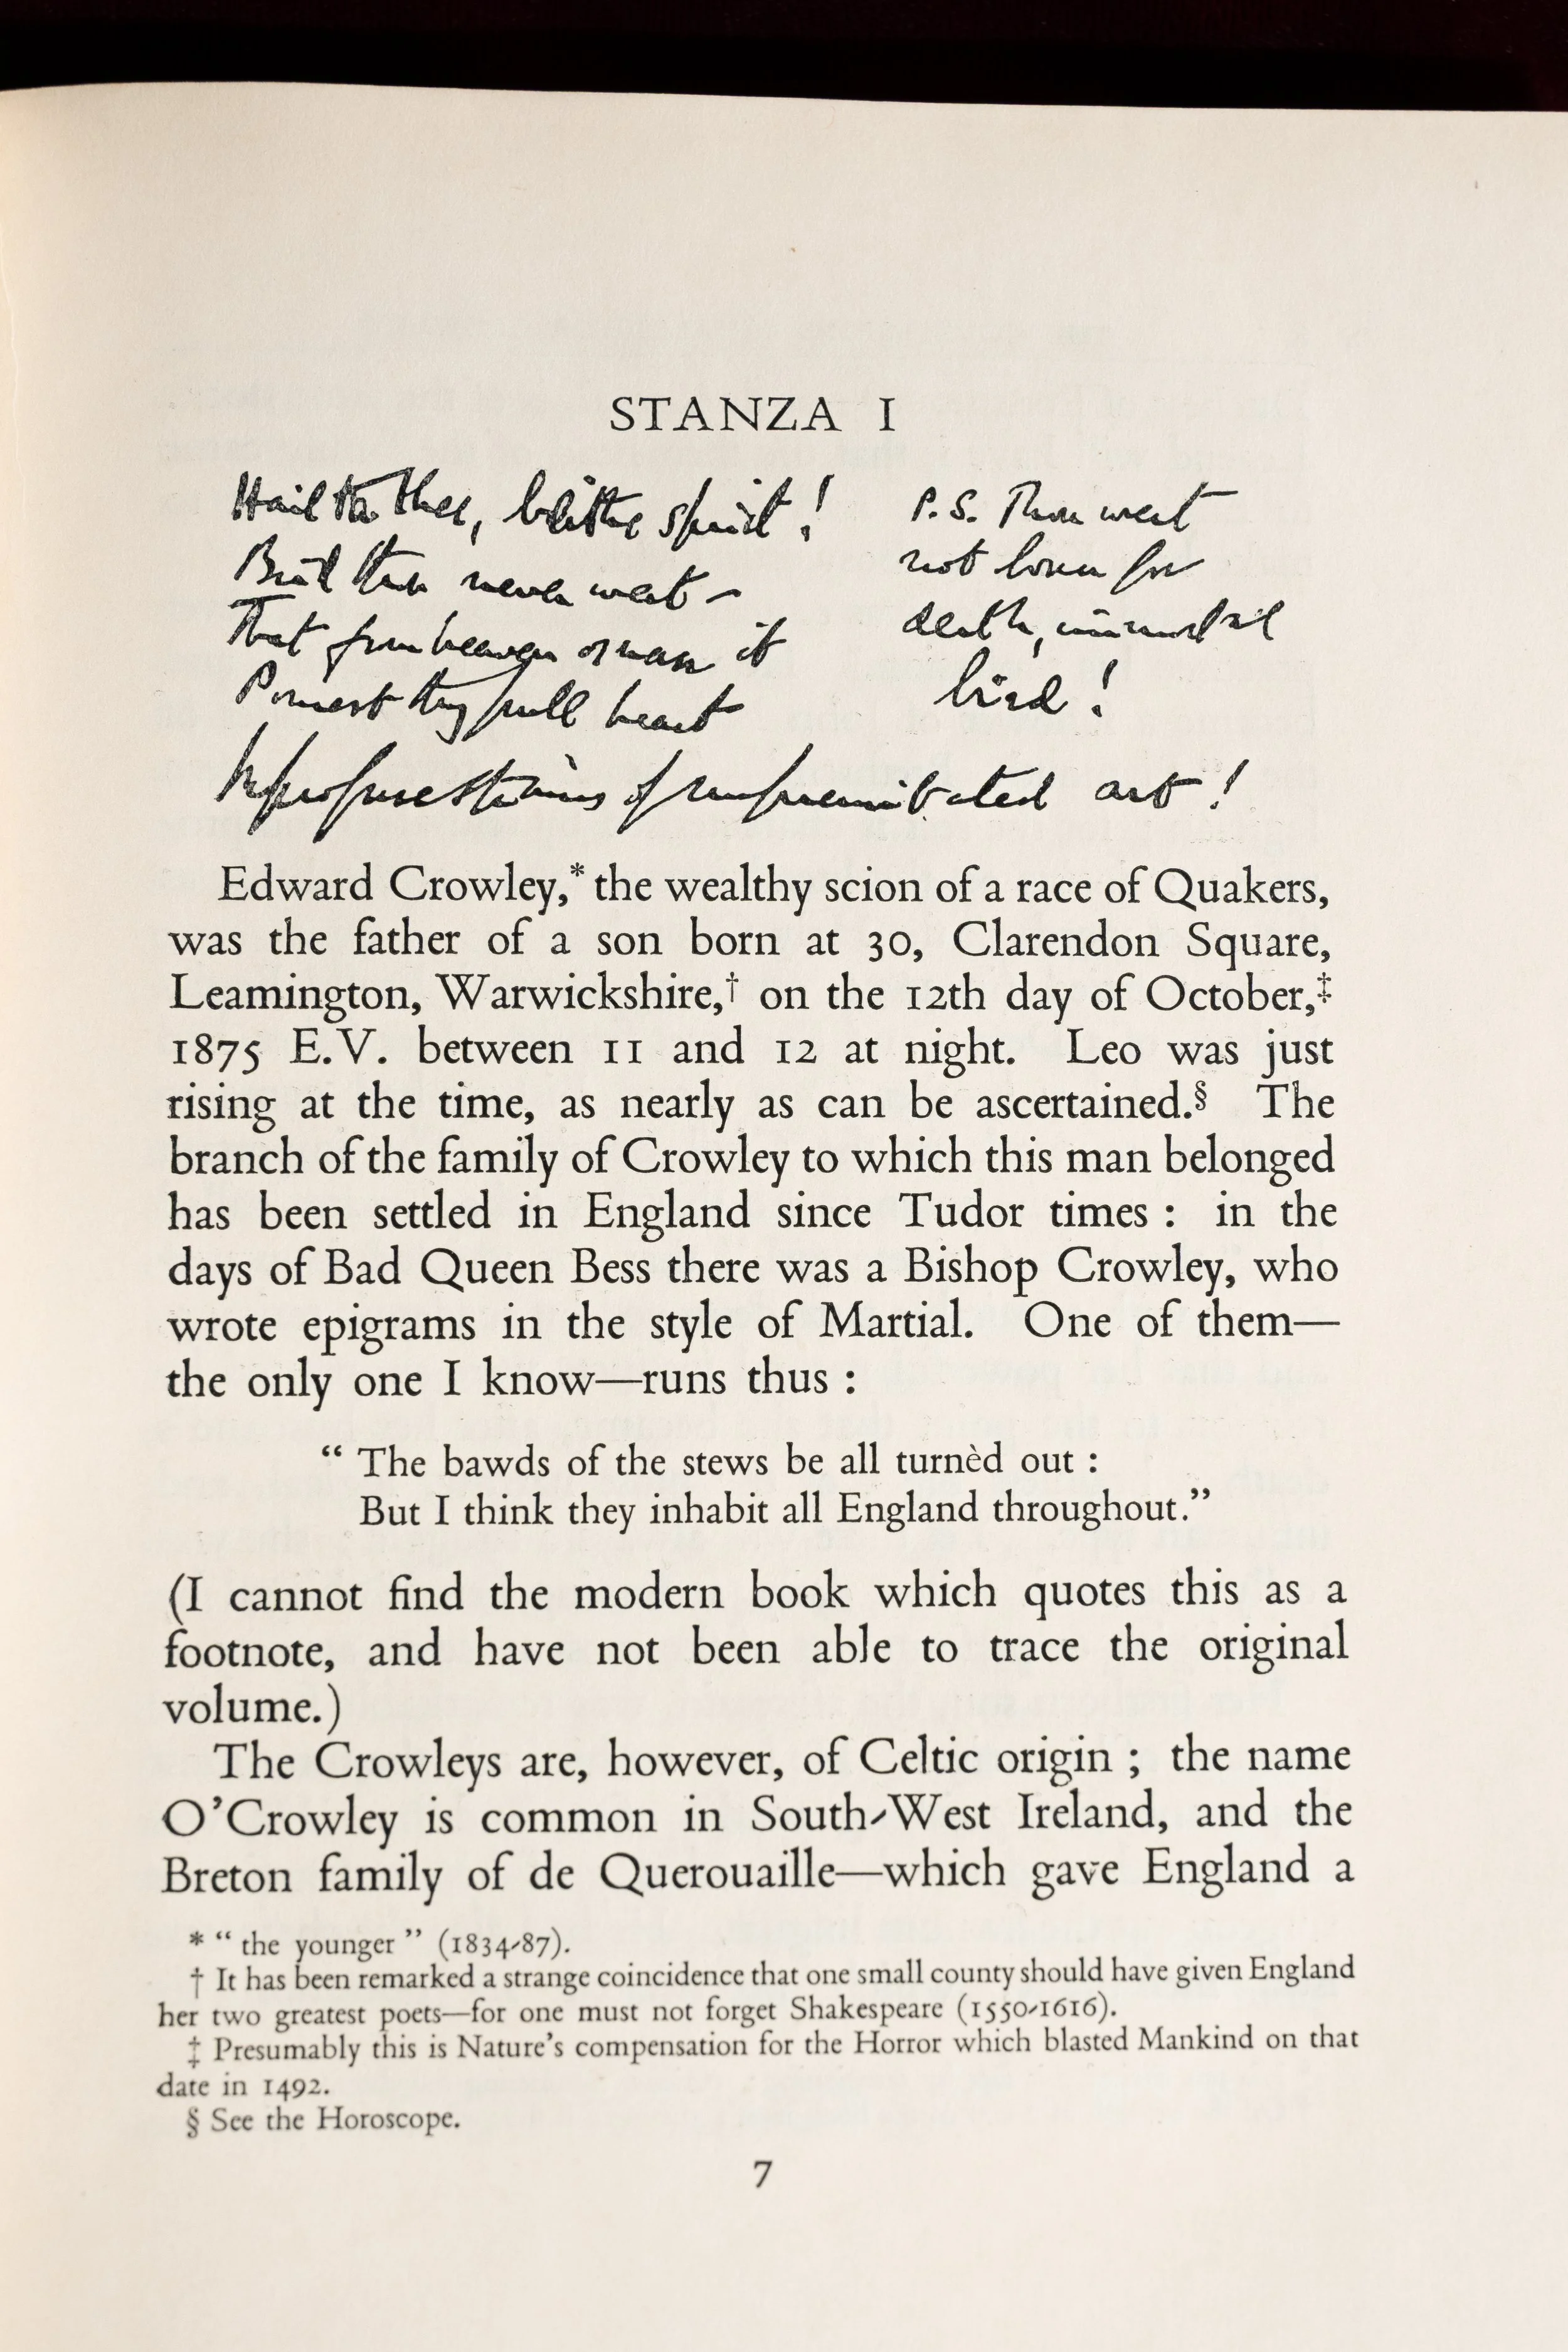 STANZA I
Hail to thee, blithe spirit!
Bird thou never wert –
That from heaven or near it
Pourest thy full heart
In profuse strains of unpremeditated art!
P.S. Thou wert
not born for
death, immortal
bird!
Edward Crowley,* the wealthy scion of a race of Quakers,
was the father of a son born at 30, Clarendon Square,
Leamington, Warwickshire,† on the 12th day of October,‡
1875 E.V. between 11 and 12 at night. Leo was just
rising at the time, as nearly as can be ascertained.§ The
branch of the family of Crowley to which this man belonged
has been settled in England since Tudor times : in the
days of Bad Queen Bess there was a Bishop Crowley, who
wrote epigrams in the style of Martial. One of them—
the only one I know—runs thus :
“ The bawds of the stews be all turnèd out :
But I think they inhabit all England throughout.”
(I cannot find the modern book which quotes this as a
footnote, and have not been able to trace the original
volume.)
The Crowleys are, however, of Celtic origin ; the name
O’Crowley is common in South-West Ireland, and the
Breton family of de Querouaille—which gave England a
* “ the younger ” (1834-87).
† It has been remarked a strange coincidence that one small county should have given England
her two greatest poets—for one must not forget Shakespeare (1550-1616).
‡ Presumably this is Nature’s compensation for the Horror which blasted Mankind on that
date in 1492.
§ See the Horoscope.
7